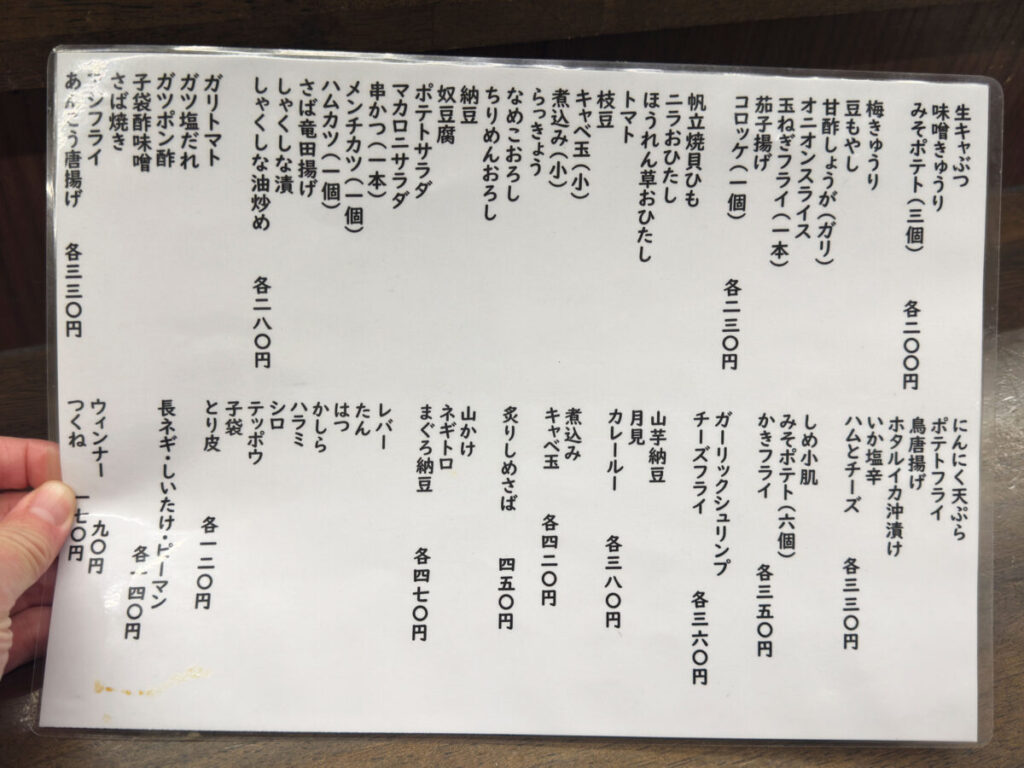 生キャぶつ
味噌きゅうり
みそポテト(三個)
各二〇〇円
梅きゅうり
豆もやし
甘酢しょうが(ガリ)
オニオンスライス
玉ねぎフライ(一本)
茄子揚げ
コロッケ(一個)
各二三〇円
帆立焼貝ひも
ニラおひたし
ほうれん草おひたし
トマト
枝豆
キャベ玉(小)
煮込み(小)
らっきょう
なめこおろし
ちりめんおろし
納豆
奴豆腐
ポテトサラダ
マカロニサラダ
串かつ(一本)
メンチカツ(一個)
ハムカツ(一個)
さば竜田揚げ
しゃくしな漬
しゃくしな油炒め
各二八〇円
ガリトマト
ガツ塩だれ
ガツポン酢
子袋酢味噌
さば焼き
アジフライ
あんこう唐揚げ
各三三〇円
にんにく天ぷら
ポテトフライ
鳥唐揚げ
ホタルイカ沖漬け
いか塩辛
ハムとチーズ
各三三〇円
しめ小肌
みそポテト(六個)
かきフライ
各三五〇円
ガーリックシュリンプ
チーズフライ
各三六〇円
山芋納豆
月見
カレールー
各三八〇円
煮込み
キャベ玉
各四二〇円
炙りしめさば
四五〇円
山かけ
ネギトロ
まぐろ納豆
各四七〇円
レバー
たん
はつ
かしら
ハラミ
シロ
テッポウ
子袋
とり皮
各一二〇円
長ネギ・しいたけ・ピーマン
各一四〇円
ウィンナー 九〇円
つくね 一七〇円